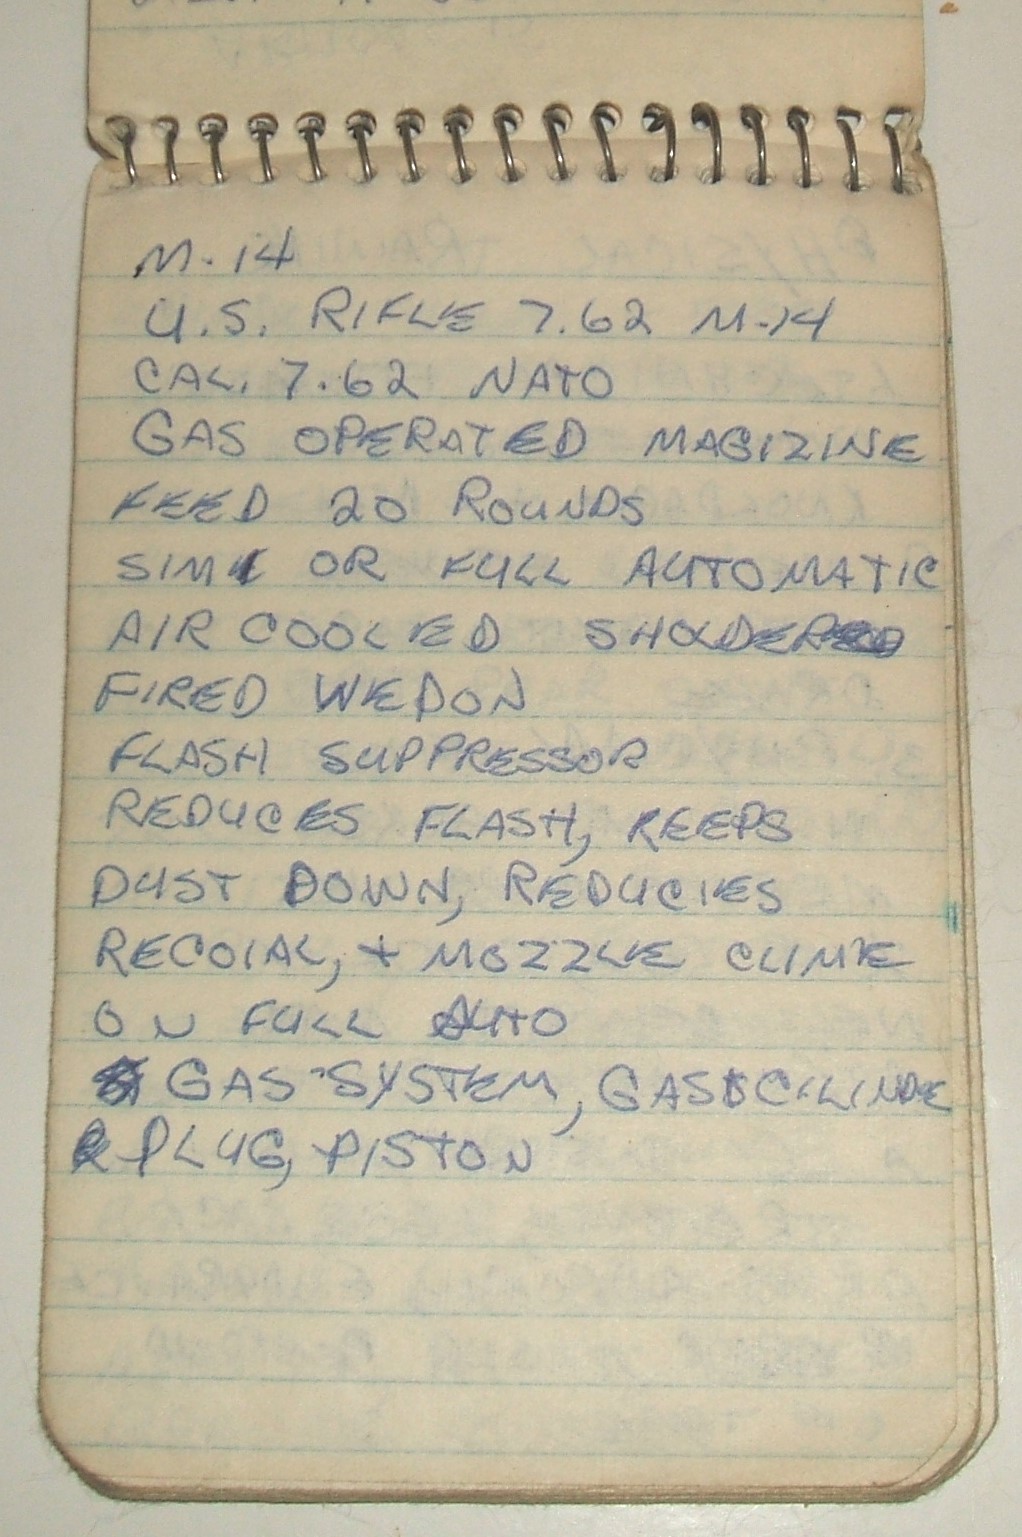 M-14
U.S. RIFLE 7.62 M-14
CAL. 7.62 NATO
GAS OPERATED MAGIZINE
FEED 20 ROUNDS
SIMI OR FULL AUTOMATIC
AIR COOLED SHOLDER
FIRED WEPON
FLASH SUPPRESSOR
REDUCES FLASH, KEEPS
DUST DOWN, REDUCIES
RECOIAL, + MOZZLE CLIME
ON FULL AUTO
GAS SYSTEM, GAS CILINDE
R PLUG, PISTON